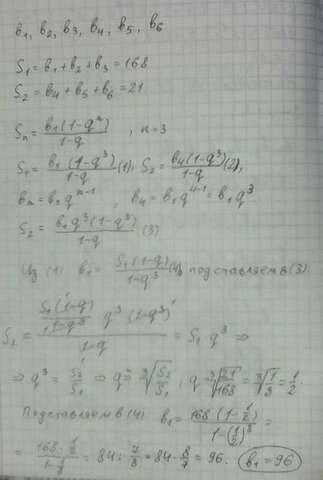 b₁, b₂, b₃, b₄, b₅, b₆
S₁ = b₁ + b₂ + b₃ = 168
S₂ = b₄ + b₅ + b₆ = 21
Sₙ = b₁(1-qⁿ)/(1-q) , n=3
S₁ = b₁(1-q³)/(1-q) (1), S₂ = b₄(1-q³)/(1-q) (2),
bₙ = b₁qⁿ⁻¹ , b₄ = b₁q⁴⁻¹ = b₁q³
S₂ = b₁q³(1-q³)/(1-q) (3)
Из (1) b₁ = S₁(1-q)/(1-q³) (4), подставляем в (3)
S₂ = (S₁(1-q)/(1-q³) q³ (1-q³))/(1-q) = S₁·q³ ⇒
⇒ q³ = S₂/S₁ ⇒ q = ∛(S₂/S₁) , q = ∛(21/168) = ∛(1/8) = 1/2.
Подставляем в (4). b₁ = 168(1-1/2)/(1-(1/2)³) =
= (168·1/2)/(1-1/8) = 84 : 7/8 = 84·8/7 = 96. b₁ = 96